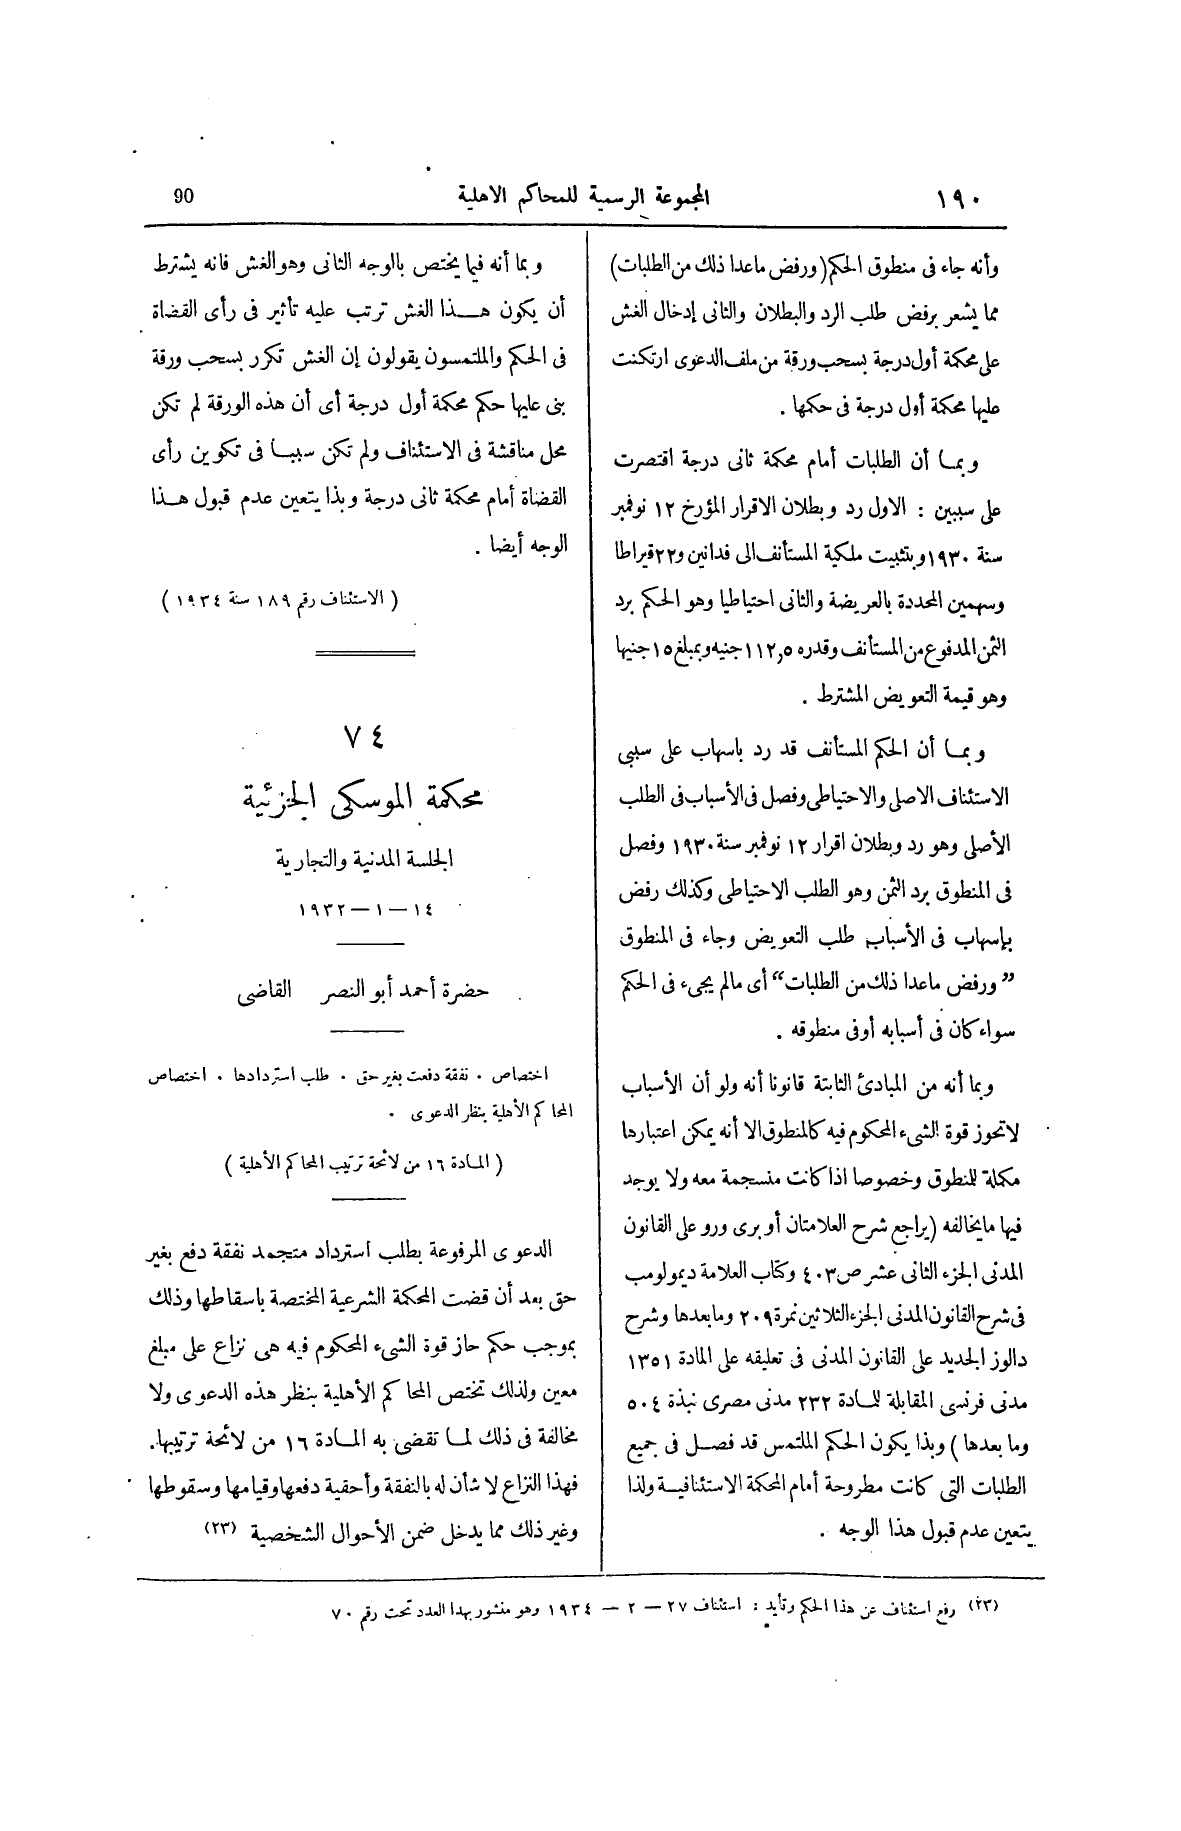 ١٩٠
المجموعة الرسمية للمحاكم الاهلية
90
وأنه جاء فى منطوق الحكم (ورفض ماعدا ذلك من الطلبات)
مما يشعر برفض طلب الرد والبطلان والثانى إدخال الغش
على محكمة أول درجة بسحب ورقة من ملف الدعوى ارتكنت
عليها محكمة أول درجة فى حكمها .
وبمـا أن الطلبات أمام محكمة ثانى درجة اقتصرت
على سببين : الاول رد وبطلان الاقرار المؤرخ ١٢ نوفمبر
سنة ١٩٣٠ وبتثبيت ملكية المستأنف الى فدانين و٢٢ قيراطا
وسهمين المحددة بالعريضة والثانى احتياطيا وهو الحكم برد
الثمن المدفوع من المستأنف وقدره ١١٢,٥ جنيه وبمبلغ ١٥ جنيها
وهو قيمة التعويض المشترط .
وبمـا أن الحكم المستأنف قد رد باسهاب على سببى
الاستئناف الاصلى والاحتياطى وفصل فى الأسباب فى الطلب
الأصلى وهو رد وبطلان اقرار ١٢ نوفمبر سنة ١٩٣٠ وفصل
فى المنطوق برد الثمن وهو الطلب الاحتياطى وكذلك رفض
بإسهاب فى الأسباب طلب التعويض وجاء فى المنطوق
” ورفض ماعدا ذلك من الطلبات“ أى مالم يجىء فى الحكم
سواء كان فى أسبابه أو فى منطوقه .
وبما أنه من المبادئ الثابتة قانونا أنه ولو أن الأسباب
لاتحوز قوة الشىء المحكوم فيه كالمنطوق الا أنه يمكن اعتبارها
مكملة للنطوق وخصوصا اذا كانت منسجمة معه ولا يوجد
فيها مايخالفه (يراجع شرح العلامتان أوبرى ورو على القانون
المدنى الجزء الثانى عشر ص ٤٠٣ وكتاب العلامة ديمولومب
فى شرح القانون المدنى الجزء الثلاثين نمرة ٢٠٩ وما بعدها وشرح
دالوز الجديد على القانون المدنى فى تعليقه على المادة ١٣٥١
مدنى فرنسى المقابلة للـادة ٢٣٢ مدنى مصرى نبذة ٥٠٤
وما بعدها ) وبذا يكون الحكم الملتمس قد فصـل فى جميع
الطلبات التى كانت مطروحة أمام المحكمة الاستئنافيـة ولذا
يتعين عدم قبول هذا الوجه .
وبما أنه فيما يختص بالوجه الثانى وهو الغش فانه يشترط
أن يكون هـــذا الغش ترتب عليه تأثير فى رأى القضاة
فى الحكم والملتمسون يقولون إن الغش تكرر بسحب ورقة
بنى عليها حكم محكمة أول درجة أى أن هذه الورقة لم تكن
محل مناقشة فى الاستئناف ولم تكن سببـا فى تكوين رأى
القضاة أمام محكمة ثانى درجة وبذا يتعين عدم قبول هـذا
الوجه أيضا .
( الاستئناف رقم ١٨٩ سنة ١٩٣٤ )
٧٤
محكمة الموسكى الجزئية
الجلسة المدنية والتجارية
١٤ — ١ — ١٩٣٢
حضرة أحمد أبو النصر القاضى
اختصاص . نفقة دفعت بغير حق . طلب استردادها . اختصاص
المحاكم الأهلية بنظر الدعوى .
( المـادة ١٦ من لائحة ترتيب المحاكم الأهلية )
الدعوى المرفوعة بطلب استرداد متجمد نفقة دفع بغير
حق بعد أن قضت المحكمة الشرعية المختصة باسقاطها وذلك
بموجب حكم حاز قوة الشىء المحكوم فيه هى نزاع على مبلغ
معين ولذلك تختص المحاكم الأهلية بنظر هذه الدعوى ولا
مخالفة فى ذلك لمـا تقضى به المـادة ١٦ من لائحة ترتيبها.
فهذا النزاع لا شأن له بالنفقة وأحقية دفعها وقيامها وسقوطها
وغير ذلك مما يدخل ضمن الأحوال الشخصية (٢٣)
(٢٣) رفع استئناف عن هذا الحكم وتأيد : استئناف ٢٧ — ٢ — ١٩٣٤ وهو منشور بهذا العدد تحت رقم ٧٠